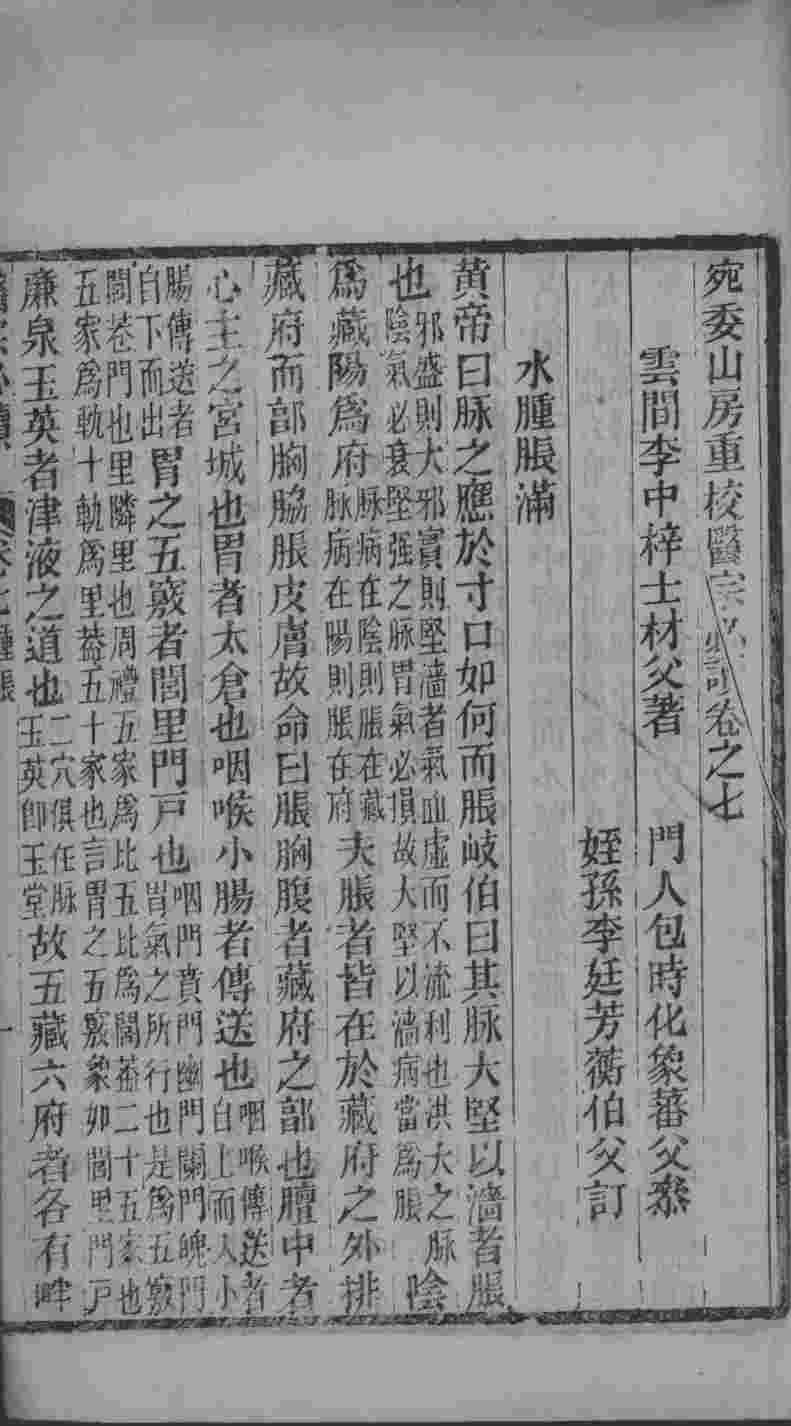 宛委山房重校醫宗必讀卷之七
雲間李中梓士材父著　門人包時化象蕃父叅
姪孫李廷芳蘅伯父訂
水腫脹滿
黃帝曰脉之應於寸口如何而脹岐伯曰其脉大堅以濇者脹
也邪盛則大邪實則堅濇者氣血虛而不流利也洪大之脉陰氣必衰堅强之脉胃氣必損故大堅以濇病當爲脹陰
爲藏陽爲府脉病在陰則脹在藏脉病在陽則脹在府夫脹者皆在於藏府之外排
藏府而郭胸脇脹皮膚故命曰脹胸腹者藏府之郭也膻中者
心主之宮城也胃者太倉也咽喉小腸者傳送也咽喉傳送者自上而入小
腸傳送者自下而出胃之五竅者閭里門戸也咽門賁門幽門闌門魄門胃氣之所行也是爲五竅
閭巷門也里隣里也周禮五家爲比五比爲閭葢二十五家也五家爲軌十軌爲里葢五十家也言胃之五竅象如閭里門戸
廉泉玉英者津液之道也二穴俱在脉玉英卽玉堂故五藏六府者各有畔